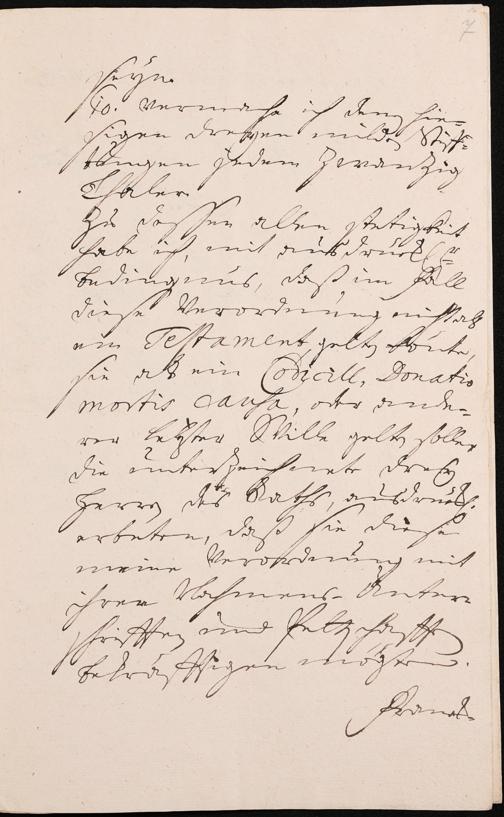 7
seyn.
10. Vermache ich denen hie-
sigen dreyen milden Stif-
tungen jedem Zwantzig
Thaler.
Zu dessen allen stetigkeit
habe ich, mit ausdrückl.
bedingnus, daß im Fall
diese Verordnung nicht als
ein Testament gelten könte,
sie als ein Codicill, Donatio
mortis causa, oder ande-
rer letzter Wille gelten solle,
die unterzeichnete drey
Herren des Raths, ausdrückl.
erbeten, daß sie diese
meine Verordnung mit
ihrer Nahmens-Unter-
schrifften und Pettschafft
bekräfftigen möchten.
Franck-